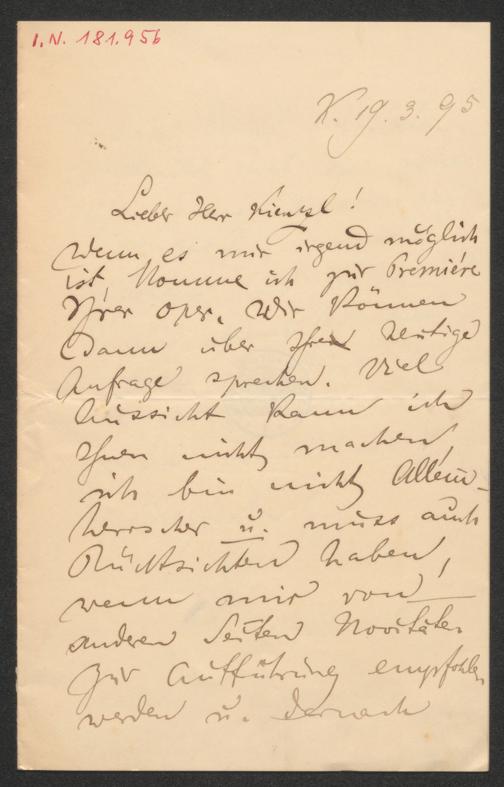 I.N. 181.956
K. 19. 3. 95
Lieber Herr Kienzl!
Wenn es mir irgend möglich
ist, komme ich zur Premiére
Ihrer Oper. Wir können
dann über Ihre heutige
Anfrage sprechen. Viel
Aussicht kann ich
Ihnen nicht machen,
ich bin nicht Allein-
herrscher u. muss auch
Rücksichten haben,
wenn mir von
anderen Seiten Novitäten
zur Aufführung empfohlen
werden u. dernach